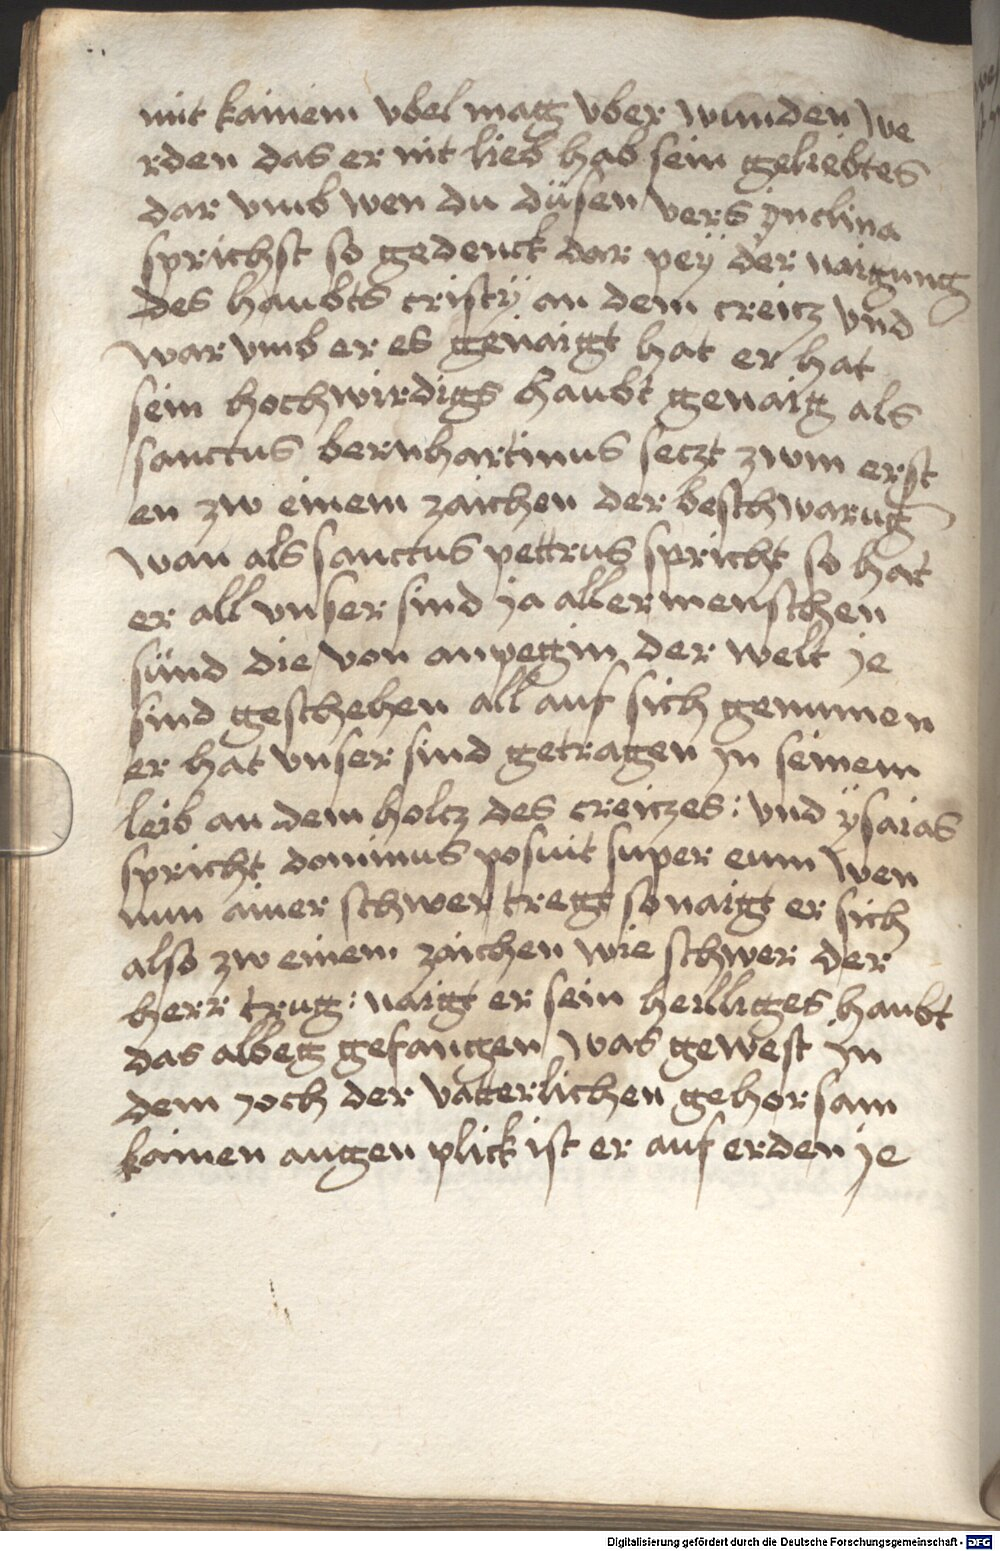 mit kainem vbel mag vber wunden we
rden das er nit lieb hab sein geliebtes
dar vmb wen du düsen vers jnclina
sprichst so gedenck dar peÿ der naigung
des haubts cristÿ an dem creitz vnd
war vmb er es genaigt hat er hat
sein hochwirdigs haubt genaig als
sanctus bernhartinus setzt zwm erst
en zw einem zaichen der beschwarug
wan als sanctus pettrus spricht so hat
er all vnser sind ja aller menschen
sünd die von anpegin der welt je
sind geschehen all auf sich genumen
er hat vnser sind getragen jn seinem
leib an dem holtz des creitzes : vnd ÿsaias
spricht dominus posuit super eum wen
nun ainer schwer tregt so naigt er sich
also zw einem zaichen wie schwer der
herr trug : naigt er sein heilliges haubt
das albeg gefangen was gewest jn
dem joch der vatterlichen gehorsam
kainen augen plick ist er auf erden je
Digitalisierung gefördert durch die Deutsche Forschungsgemeinschaft - DFG